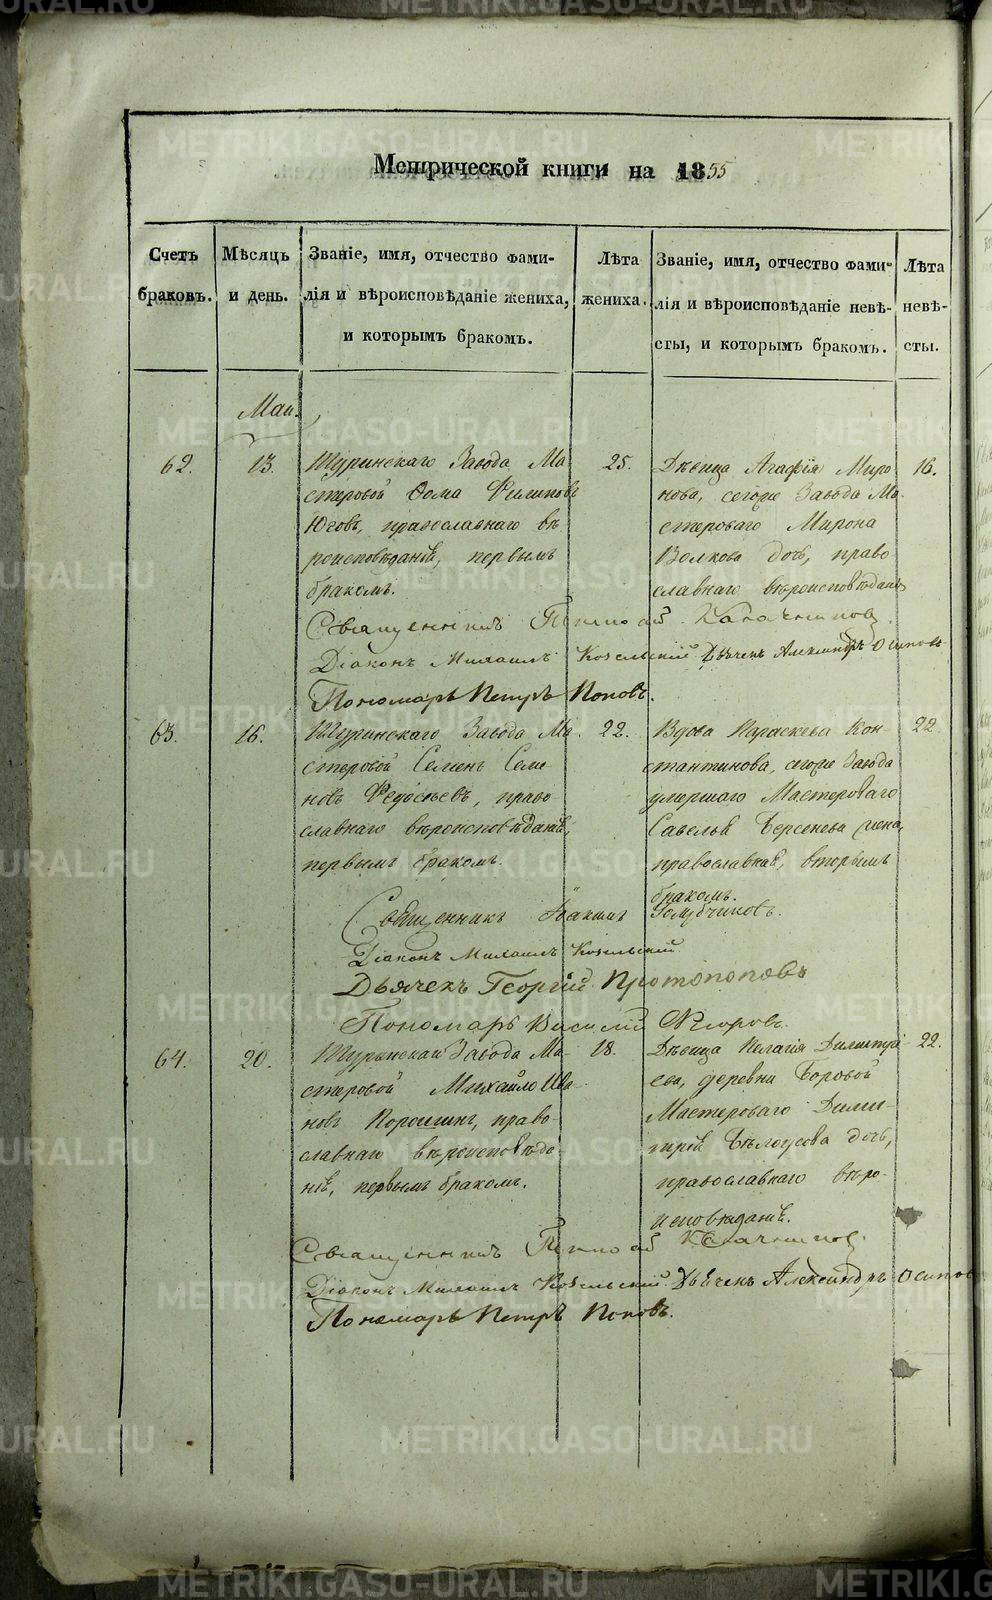 Метрической книги на 1855
Счетъ браковъ.
Мѣсяцъ и день.
Званіе, имя, отчество фами-
лія и вѣроисповѣданіе жениха,
и которымъ бракомъ.
Лѣта жениха.
Званіе, имя, отчество фами-
лія и вѣроисповѣданіе невѣ-
сты, и которымъ бракомъ.
Лѣта невѣ-
сты.
Маи.
62.
13.
Туринскаго Завода Ма-
стеровой Ѳома Филиповъ
Юговъ, православнаго вѣ
роисповѣданія, первымъ
бракомъ.
25.
Дѣвица Агафія Миро
нова, сегоже Завода Ма-
стероваго Мирона
Волкова дочь, право-
славнаго вѣроисповѣданія
16.
Священникъ
Діаконъ Михаилъ Козельскій Дьячекъ Александръ Осиповъ
Пономарь Петръ Поповъ.
63.
16.
Туринскаго Завода Ма-
стеровой Семенъ Семе
новъ Федосѣевъ, право
славнаго вѣроисповѣданія,
первымъ бракомъ.
22.
Вдова Параскева Кон-
стантинова, сегоже Завода
умершаго Мастероваго
Савелья Берсенева жена,
православная, вторымъ
бракомъ.
22.
Священникъ Іакимъ Голубчиковъ.
Діаконъ Михаилъ Козельскій
Дьячекъ Георгій Протопоповъ
Пономарь Василій Ѳедоровъ.
64.
20.
Туринскаго Завода Ма-
стеровой Михайло Ива-
новъ Коросшинъ, право-
славнаго вѣроисповѣда-
нія, первымъ бракомъ.
18.
Дѣвица Пелагія Димитрі-
ева, деревни Боровой
Мастероваго Дими-
трія Бѣлоусова дочь,
православнаго вѣро-
исповѣданія.
22.
Священникъ
Діаконъ Михаилъ Козельскій. Дьячекъ Александръ Осиповъ
Пономарь Петръ Поповъ.
METRIKI.GASO-URAL.RU